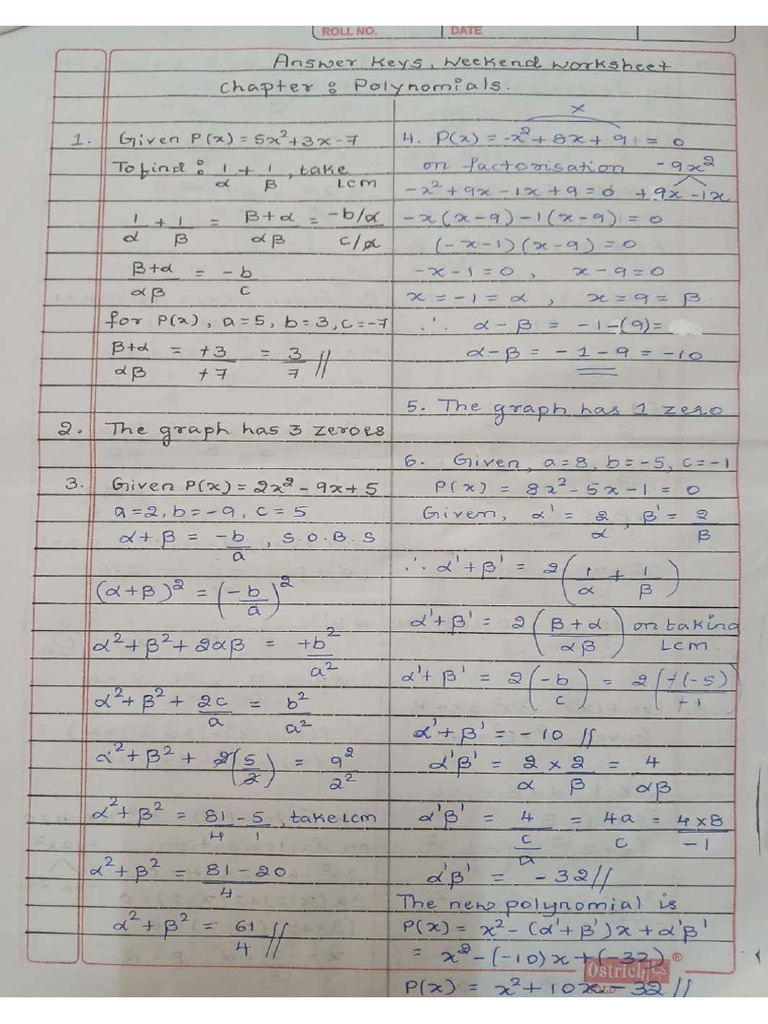 ROLL NO. DATE
Answer Keys, Weekend Worksheet
Chapter : Polynomials.
1. Given P(x) = 5x²+3x-7
To find : 1/α + 1/β, take LCM
1/α + 1/β = β+α/αβ = -b/a / c/a
β+α/αβ = -b/c
for P(x), a=5, b=3, c=-7
β+α/αβ = +3/+7 = 3/7 //
2. The graph has 3 zeroes
3. Given P(x) = 2x² - 9x+5
a=2, b=-9, c=5
α+β = -b/a, S.O.B.S
(α+β)² = (-b/a)²
α²+β²+2αβ = +b²/a²
α²+β²+ 2c/a = b²/a²
α²+β² + 2(5/2) = 9²/2²
α²+β² = 81/4 - 5/1, take LCM
α²+β² = 81-20/4
α²+β² = 61/4 //
x
4. P(x) = -x²+8x+9 = 0
on factorisation -9x²
-x²+9x-1x+9=0 +9x -1x
-x(x-9)-1(x-9)=0
(-x-1)(x-9)=0
-x-1=0, x-9=0
x=-1=α, x=9=β
∴ α-β = -1-(9)=
α-β = -1-9 = -10
5. The graph has 1 zero
6. Given, a=8, b=-5, c=-1
P(x) = 8x²-5x-1=0
Given, α' = 2/α, β' = 2/β
∴ α'+β' = 2(1/α + 1/β)
α'+β' = 2(β+α/αβ) on taking LCM
α'+β' = 2(-b/c) = 2(+(-5)/+1)
α'+β' = -10 //
α'β' = 2/α × 2/β = 4/αβ
α'β' = 4/c/a = 4a/c = 4×8/-1
α'β' = -32 //
The new polynomial is
P(x) = x²-(α'+β')x+α'β'
= x²-(-10)x+(-32)
Ostrich ®
P(x) = x²+10x-32 //